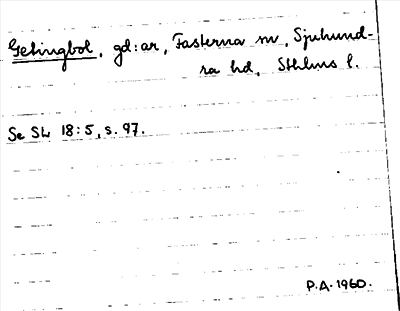 Getingbol, gd:ar, Fasterna sn, Sjuhund-
ra hd, Sthlms l.
Se SL 18:5, s. 97.
P.A. 1960.